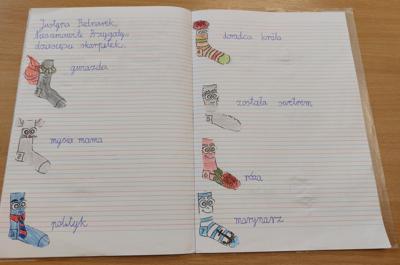 Justyna Bednarek,
Niesamowite Przygody
dziesięciu skarpetek.
gwiazda
mysia mama
polityk
doradca króla
została swetrem
róża
marynarz